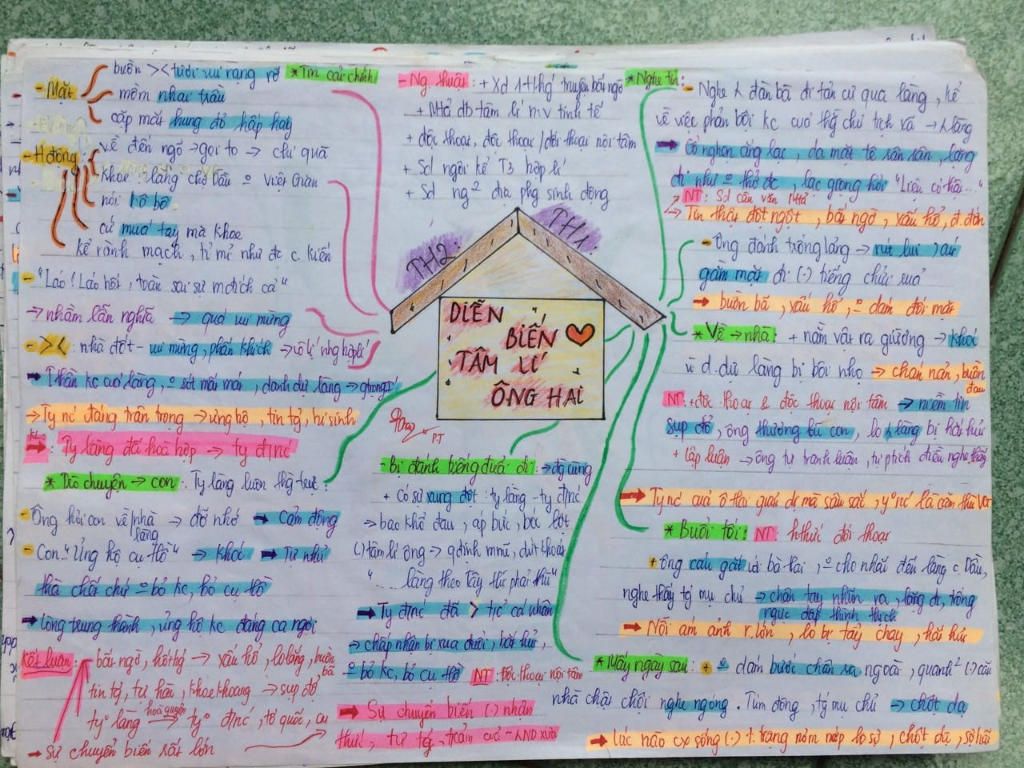 buồn >< tươi vui rạng rỡ
- Mặt
mồm nhai trầu
cặp mắt hung đỏ hấp háy
- H động
về đến ngõ → gọi to → chia quà
khoe: làng chợ Dầu =
nói bô bô
cứ múa tay mà khoe
kể rành mạch, tỉ mỉ như đc c. kiến
* Tin cải chính
- "Láo! Láo hết, toàn sai sự mđích cả"
→ nhầm lẫn nghĩa → quá vui mừng
- ><: nhà đốt - vui mừng, phấn khích →
→ Thần kc của làng, = sót mới mới, danh dự làng →
→ Ty nc đáng trân trọng → ủng hộ, tin tg, hi sinh
→: Ty làng đã hoà hợp → ty đ nc
* Trò chuyện → con: Ty làng luôn thg trực:
- Ông hỏi con về nhà → đỡ nhớ → Cảm động
làng
- Con "ủng hộ cụ Hồ" → khóc → Tự nhủ
thà chết chứ = bỏ kc, bỏ cụ Hồ
→ lòng trung thành, ủng hộ kc đáng ca ngợi
kết luận: bất ngờ, hốt hg → xấu hổ, lo lắng, buồn bã
tin tg, tự hào, khoe khoang → sụp đổ
tyº làng hoà quyện → tyº đ nc, tổ quốc, cụ
→ Sự chuyển biến rất lớn
- Ng thuật: + Xd 1 t hg truyện bất ngờ
+ Mtả db tâm lí nv tinh tế
+ độc thoại, đối thoại / độc thoại nội tâm
+ Sd ngôi kể T3 hợp lí
+ Sd ng² địa phg sinh động
TH2:
TH1
DIỄN
BIẾN
TÂM LÍ
ÔNG HAI
PT
- Bị đánh tiếng đuổi đi: → độ cùng
+ Có sự xung đột: ty làng - ty đ nc
→ bao khổ đau, áp bức, bóc lột
(-) tâm lí ông → q định mmẽ, dứt khoát
"....làng theo Tây thì phải thù"
→ Ty đ nc đã > t/c cá nhân
→ chấp nhận bị xua đuổi, hắt hủi,
= bỏ kc, bỏ cụ Hồ NT: Đối thoại nội tâm
→ Sự chuyển biến (-) nhận
thức, tư tg, t cảm của - ND xưa
* Nghe tin:
- Nghe 1 đàn bà đi tản cư qua làng, kể
về việc phản bội kc của thg chủ tịch và → làng
→ Cổ nghẹn ắng lại, da mặt tê rân rân, lặng
đi như = thở đc, lạc giọng hỏi "Liệu có thật..."
NT: Sd câu văn mtả
→ Tin thấy đột ngột, bất ngờ, xấu hổ, đ. đớn
- Ông đánh trống lảng → rút lui
gằm mặt đi (-) tiếng chửi rủa
→ buồn bã, xấu hổ, = dám đối mặt
* Về → nhà: + nằm vật ra giường → khóc
vì d. dự làng bị bôi nhọ → chán nản, buồn đau
NT: + độc thoại & độc thoại nội tâm → niềm tin
sụp đổ, ông thương lũ con, lo làng bị hắt hủi
+ Lập luận → ông tự tranh luận, tự ptích điều nghe thấy
→ Ty nc của ô Hai
* Buổi tối: NT: hthức đối thoại
+ ông cáu gắt với bà hai, = cho nhắc đến làng c. Dầu,
nghe thấy tg mụ chủ → chân tay nhũn ra, lặng đi, trống
ngực đập thình thịch
→ Nỗi ám ảnh r. lớn, lo bị tẩy chay, hắt hủi
* Mấy ngày sau: + = dám bước chân ra ngoài, quanh² (-) căn
nhà chật chội nghe ngóng. Túm đông, tg mụ chủ → chột dạ
→ lúc nào cx sống (-) t. trạng nơm nớp lo sợ, chột dạ, sợ hãi